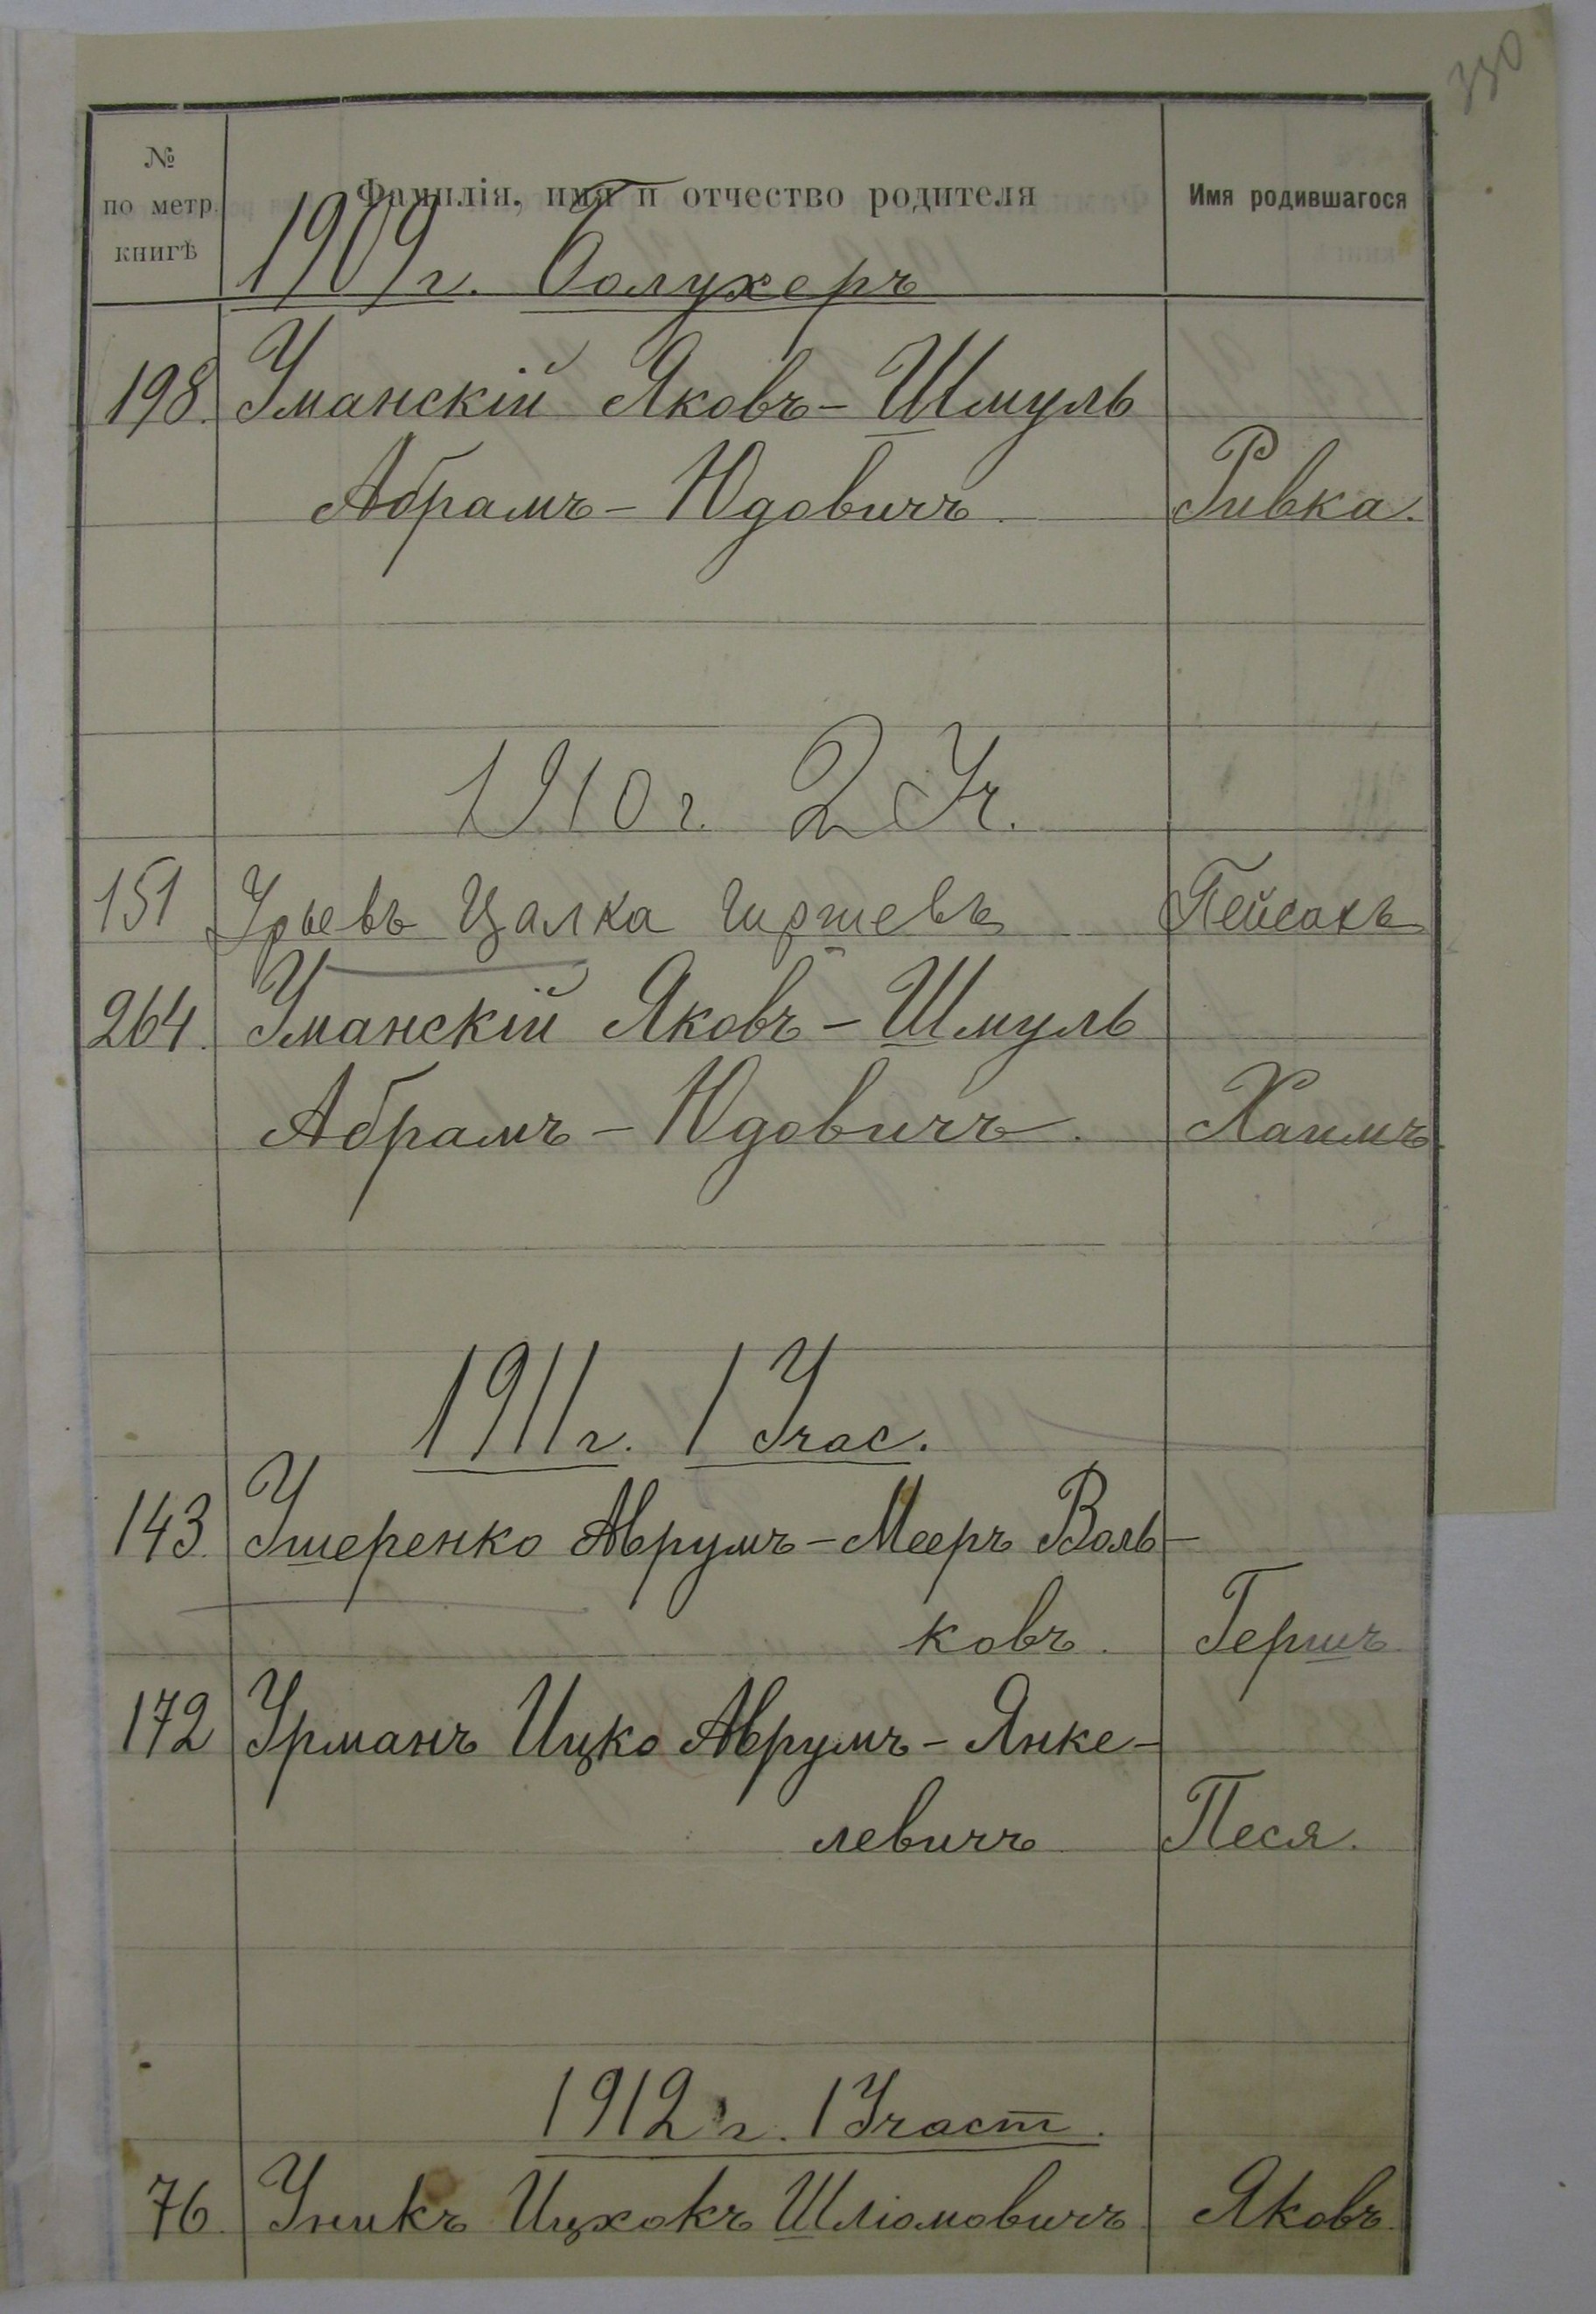 330
№ по метр. книгѣ
Фамилія, имя и отчество родителя
Имя родившагося
1909 г. Болухеръ
198. Уманскій Яковъ-Шмуль
Абрамъ-Юдовичъ Ривка.
1910 г. 2 Уч.
151 Урьевъ Цалка Гиршевъ Пейсахъ
264. Уманскій Яковъ-Шмуль
Абрамъ-Юдовичъ. Хаимъ.
1911 г. 1 Учас.
143. Ушеренко Аврумъ-Мееръ Воль-
ковъ. Гершъ
172 Урманъ Ицко Аврумъ-Янке-
левичъ Песя.
1912 г. 1 Участ.
76. Уникъ Ицхокъ Шліомовичъ Яковъ.